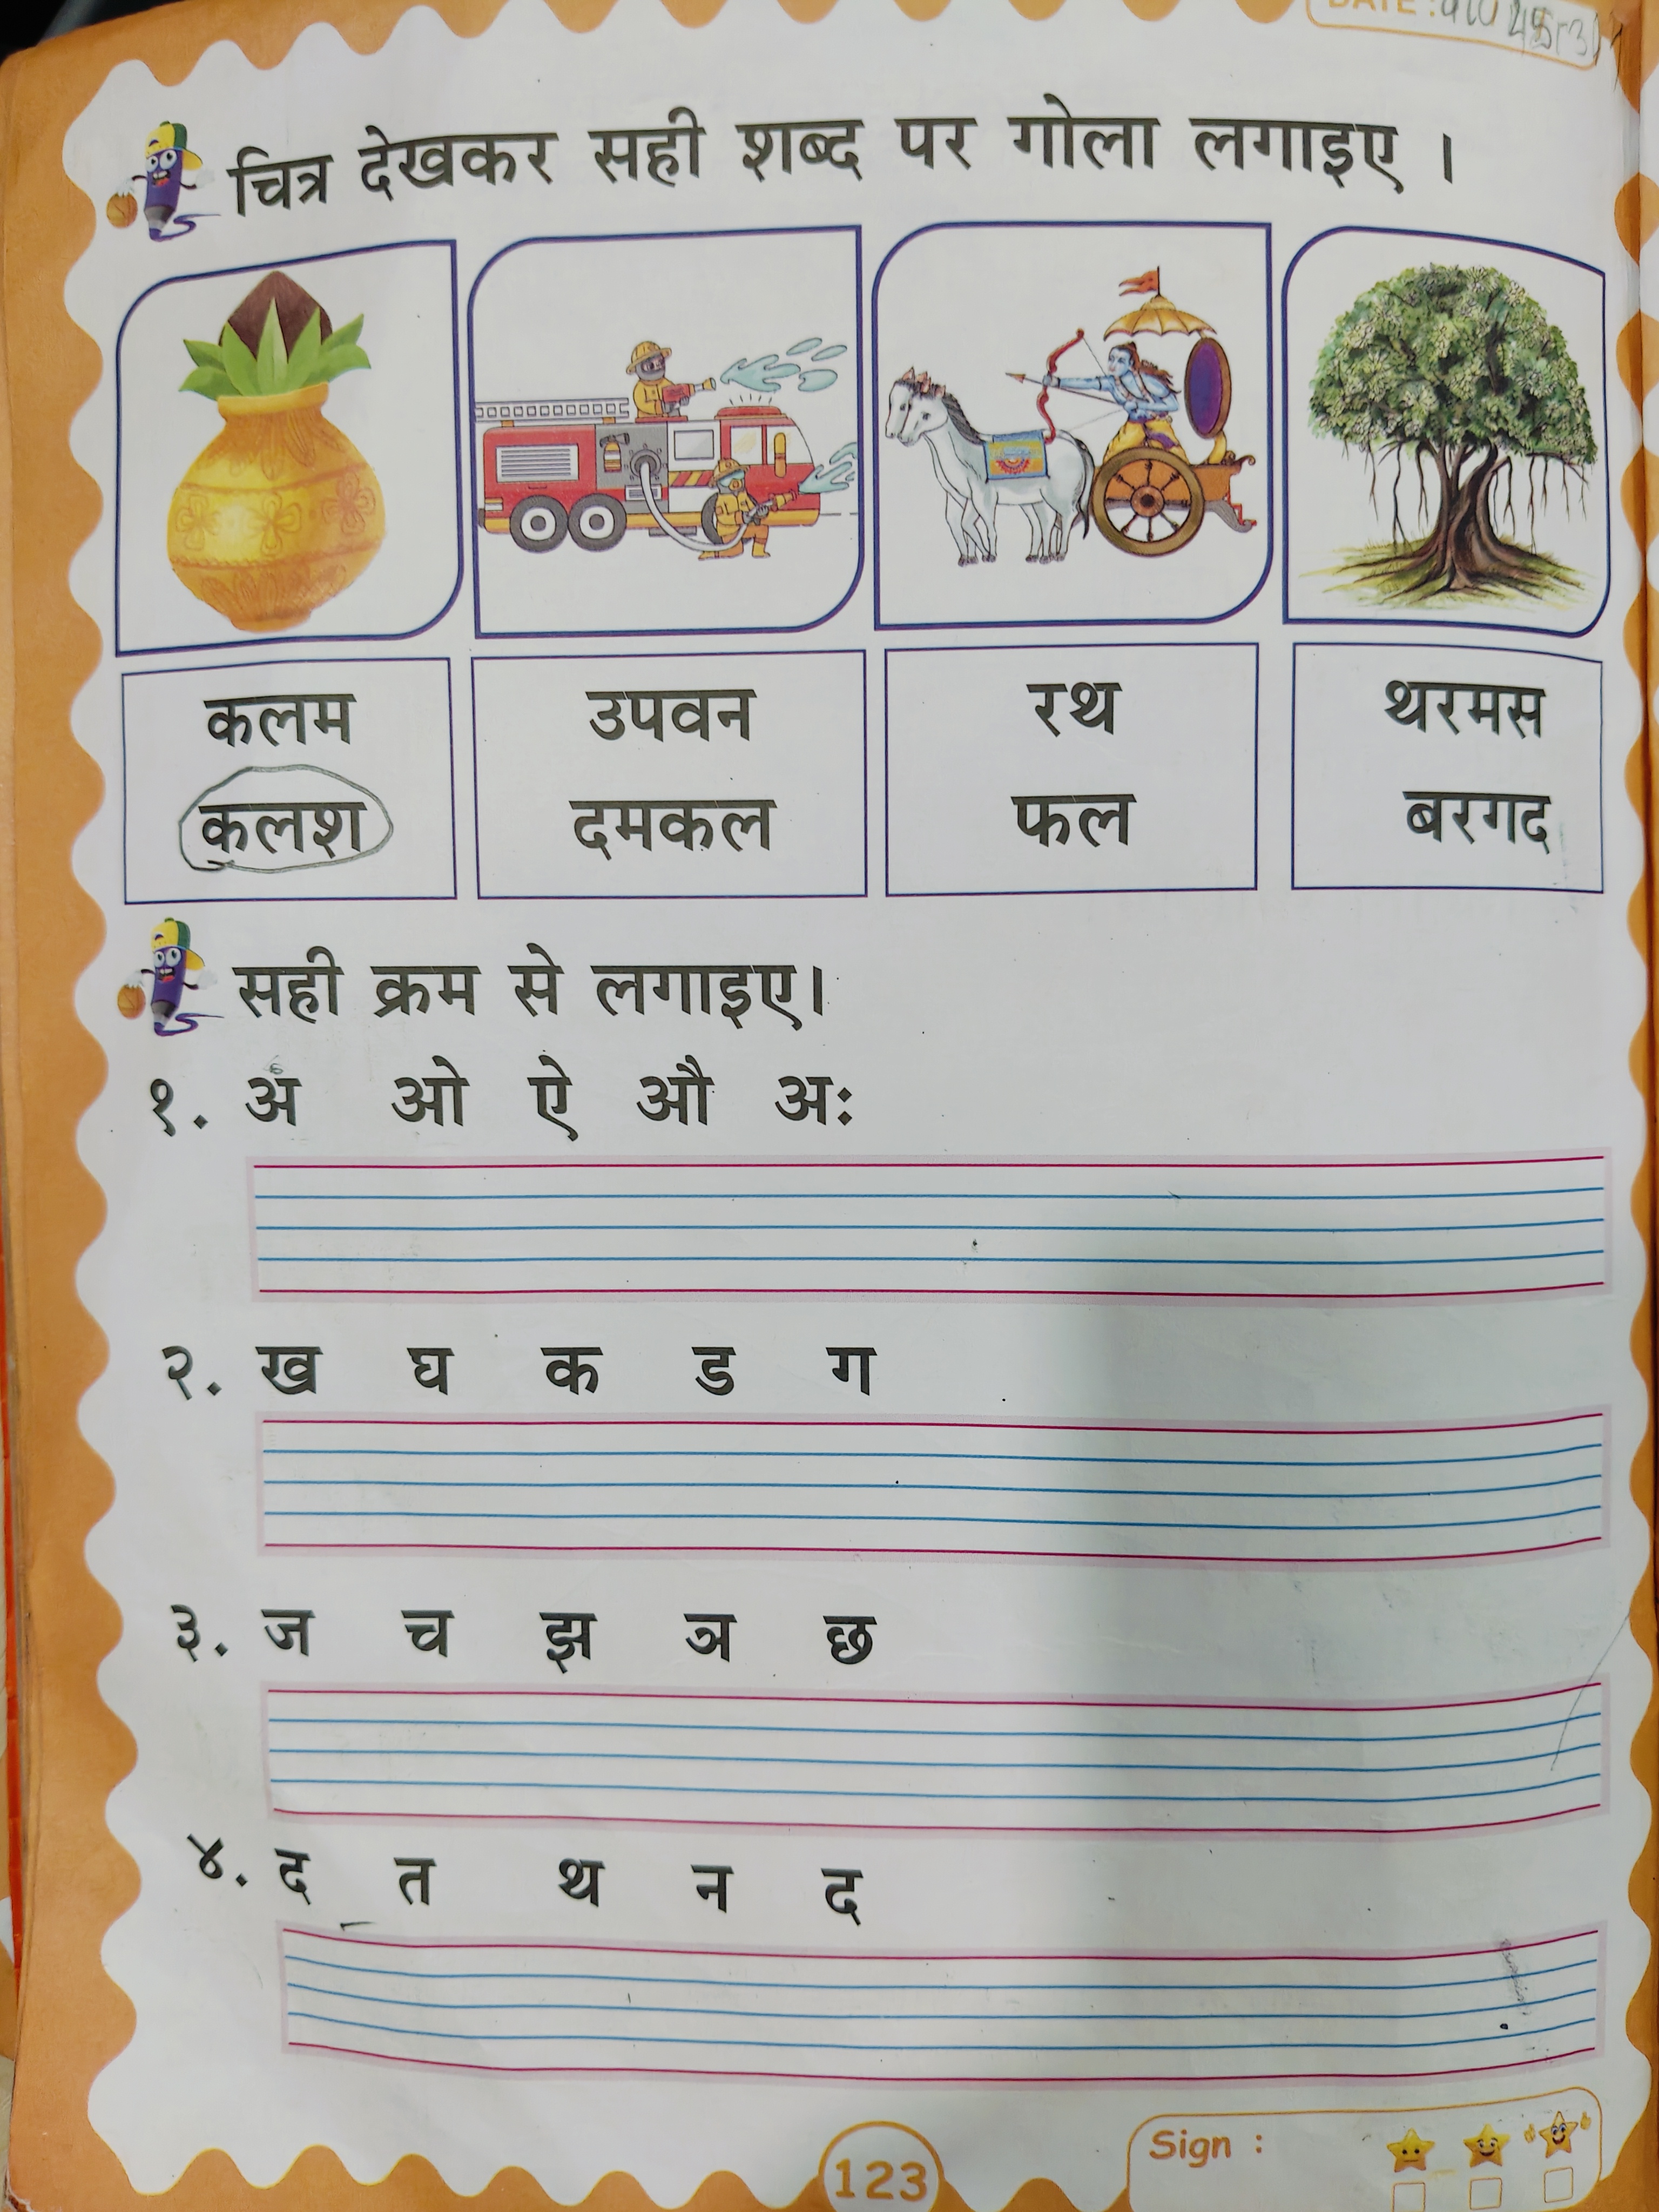 DATE :
चित्र देखकर सही शब्द पर गोला लगाइए ।
कलम उपवन रथ थरमस
कलश दमकल फल बरगद
सही क्रम से लगाइए।
१. अं ओ ऐ औ अः
२. ख घ क ड ग
३. ज च झ ञ छ
४. द त थ न द
123
Sign :